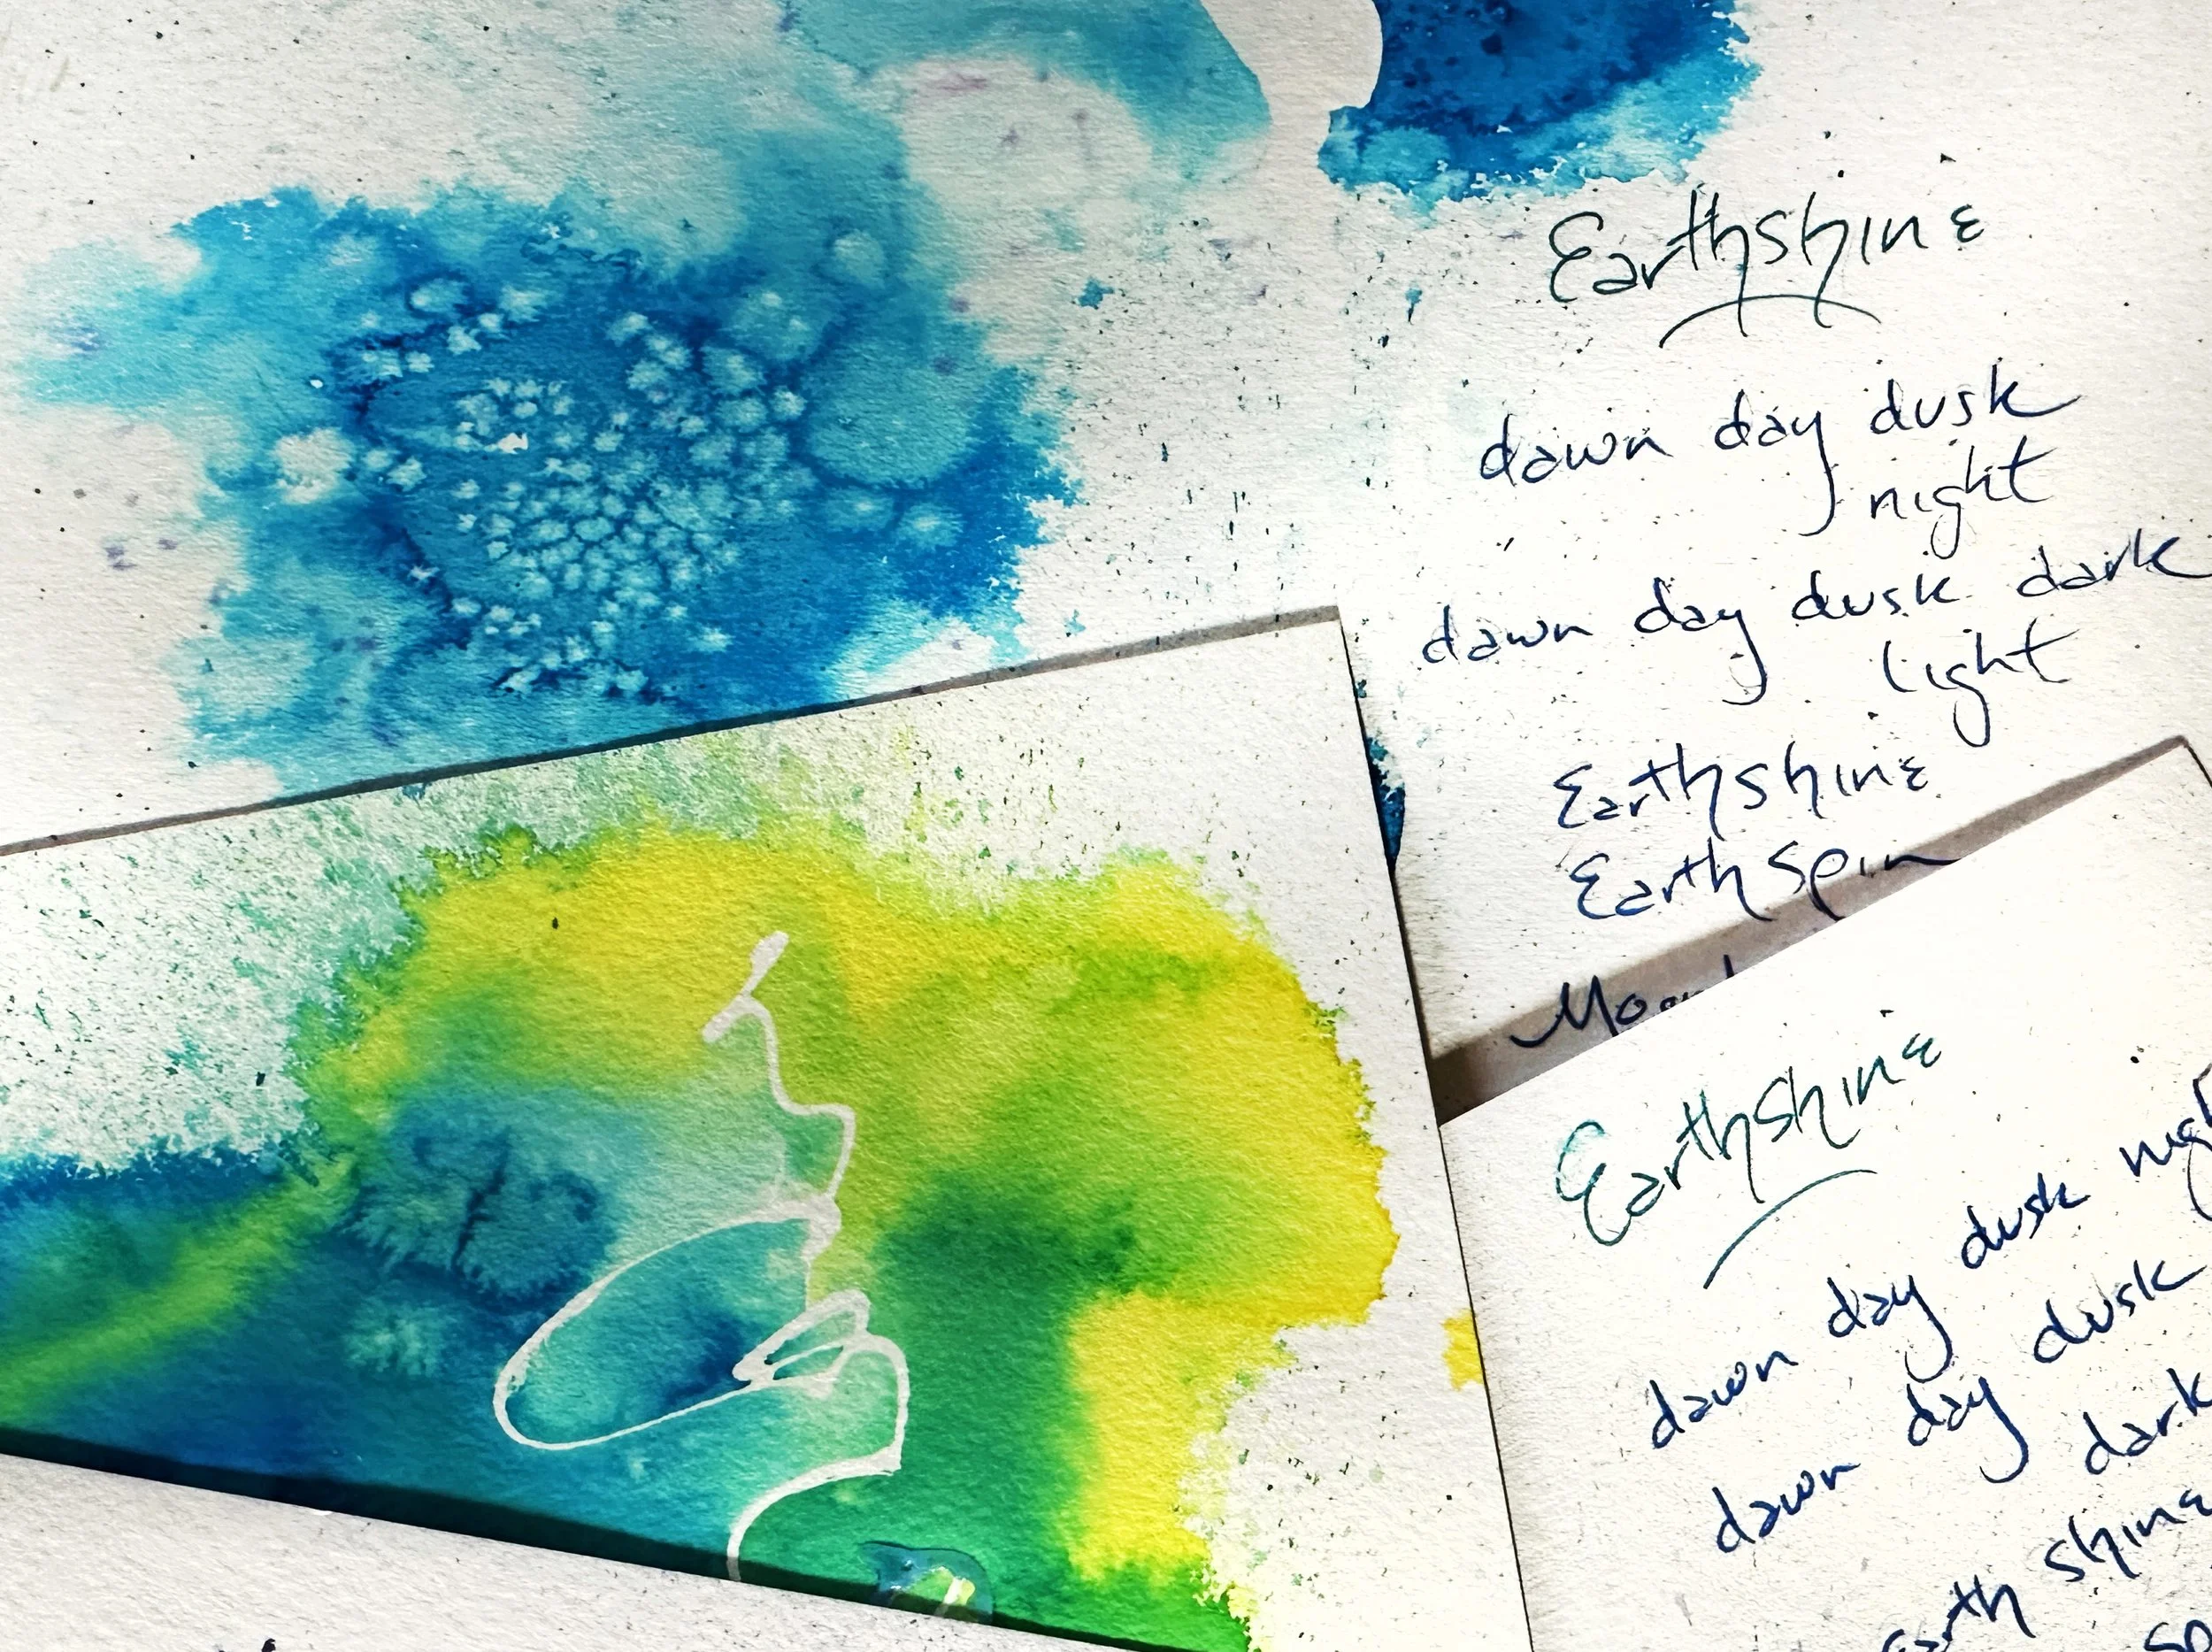 Earthshine
dawn day dusk
night
dawn day dusk dark
light
Earthshine
Earth spin
Earthshine
dawn day dusk
dawn day dusk
dark
Earth shine